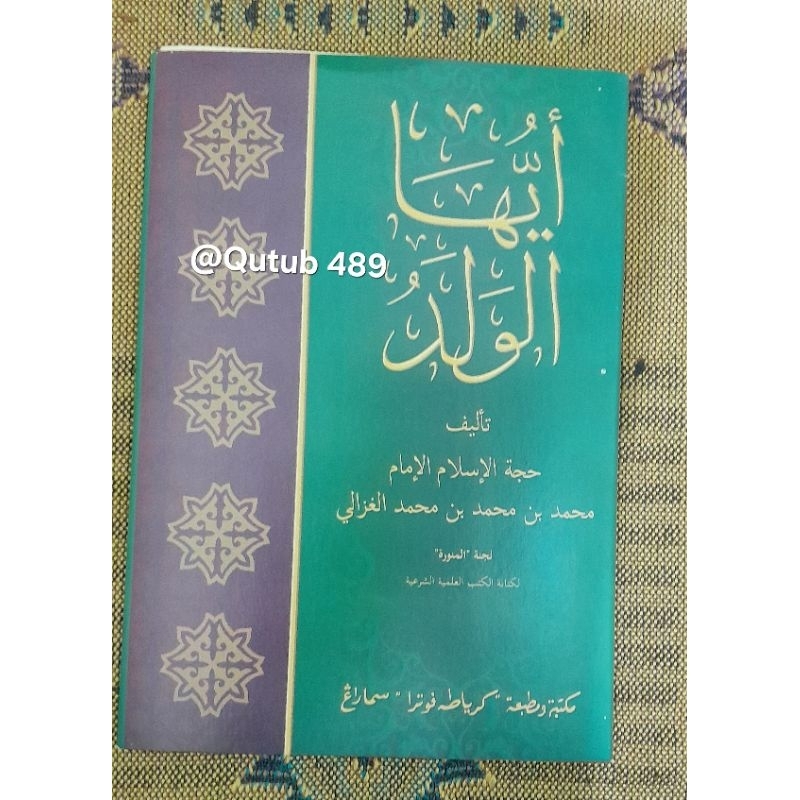 أَيُّهَا
الوَلَدُ
@Qutub 489
تأليف
حجة الإسلام الإمام
محمد بن محمد بن محمد الغزالي
لجنة "المنورة"
لكتابة الكتب العلمية الشرعية
مكتبة ومطبعة "كرياطه فوترا" سماراڠ